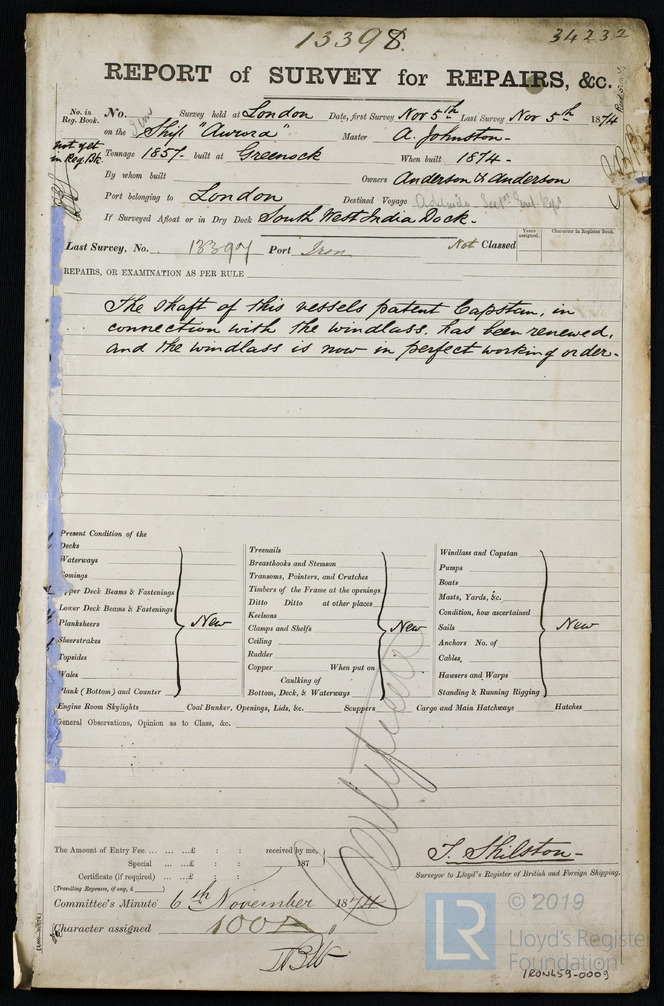 13398. 34232
REPORT of SURVEY for REPAIRS, &c.
No. in Reg. Book. No. Survey held at London Date, first Survey Nov 5th Last Survey Nov 5th 1874
on the Iron Ship "Aurora" Master A. Johnston -
not yet in Reg Bk. Tonnage 1857. built at Greenock When built 1874 -
By whom built Owners Anderson & Anderson
Port belonging to London Destined Voyage Adelaide
If Surveyed Afloat or in Dry Dock South West India Dock.
Last Survey, No. 13397 Port Iron Not Classed Years assigned. Character in Register Book.
REPAIRS, OR EXAMINATION AS PER RULE
The shaft of this vessels patent Capstan, in
connection with the windlass, has been renewed,
and the windlass is now in perfect working order.
Present Condition of the
Decks
Waterways
Comings
Upper Deck Beams & Fastenings
Lower Deck Beams & Fastenings
Planksheers
Sheerstrakes
Topsides
Wales
Plank (Bottom) and Counter
New
Treenails
Breasthooks and Stemson
Transoms, Pointers, and Crutches
Timbers of the Frame at the openings
Ditto Ditto at other places
Keelsons
Clamps and Shelfs
Ceiling
Rudder
Copper When put on
Caulking of
Bottom, Deck, & Waterways
New
Windlass and Capstan
Pumps
Boats
Masts, Yards, &c.
Condition, how ascertained
Sails
Anchors No. of
Cables
Hawsers and Warps
Standing & Running Rigging
New
Engine Room Skylights Coal Bunker, Openings, Lids, &c. Scuppers Cargo and Main Hatchways Hatches
General Observations, Opinion as to Class, &c.
The Amount of Entry Fee ... ... ...£ : : received by me,
Special ... ...£ : : 187
Certificate (if required) ... ...£ : :
(Travelling Expenses, if any, £ )
T. Shilston -
Surveyor to Lloyd's Register of British and Foreign Shipping.
Committee's Minute 6th November 1874
Character assigned 100A
LR
© 2019
Lloyd's Register
Foundation
IRON459-0009